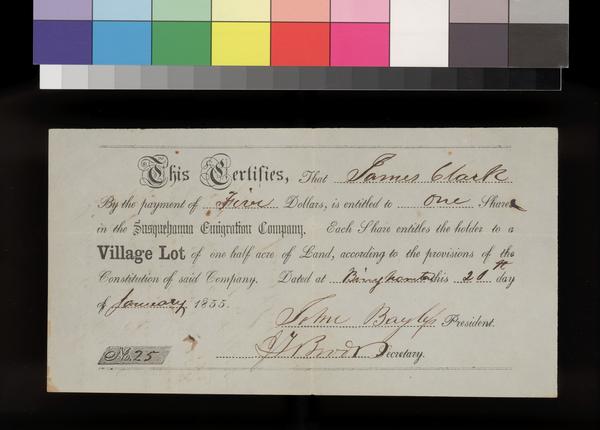 This Certifies, That James Clark
By the payment of Five Dollars, is entitled to one Share
in the Susquehanna Emigration Company. Each Share entitles the holder to a
Village Lot of one half acre of Land, according to the provisions of the
Constitution of said Company. Dated at this 20th day
of January 1855.
John President.
Secretary.
No. 25